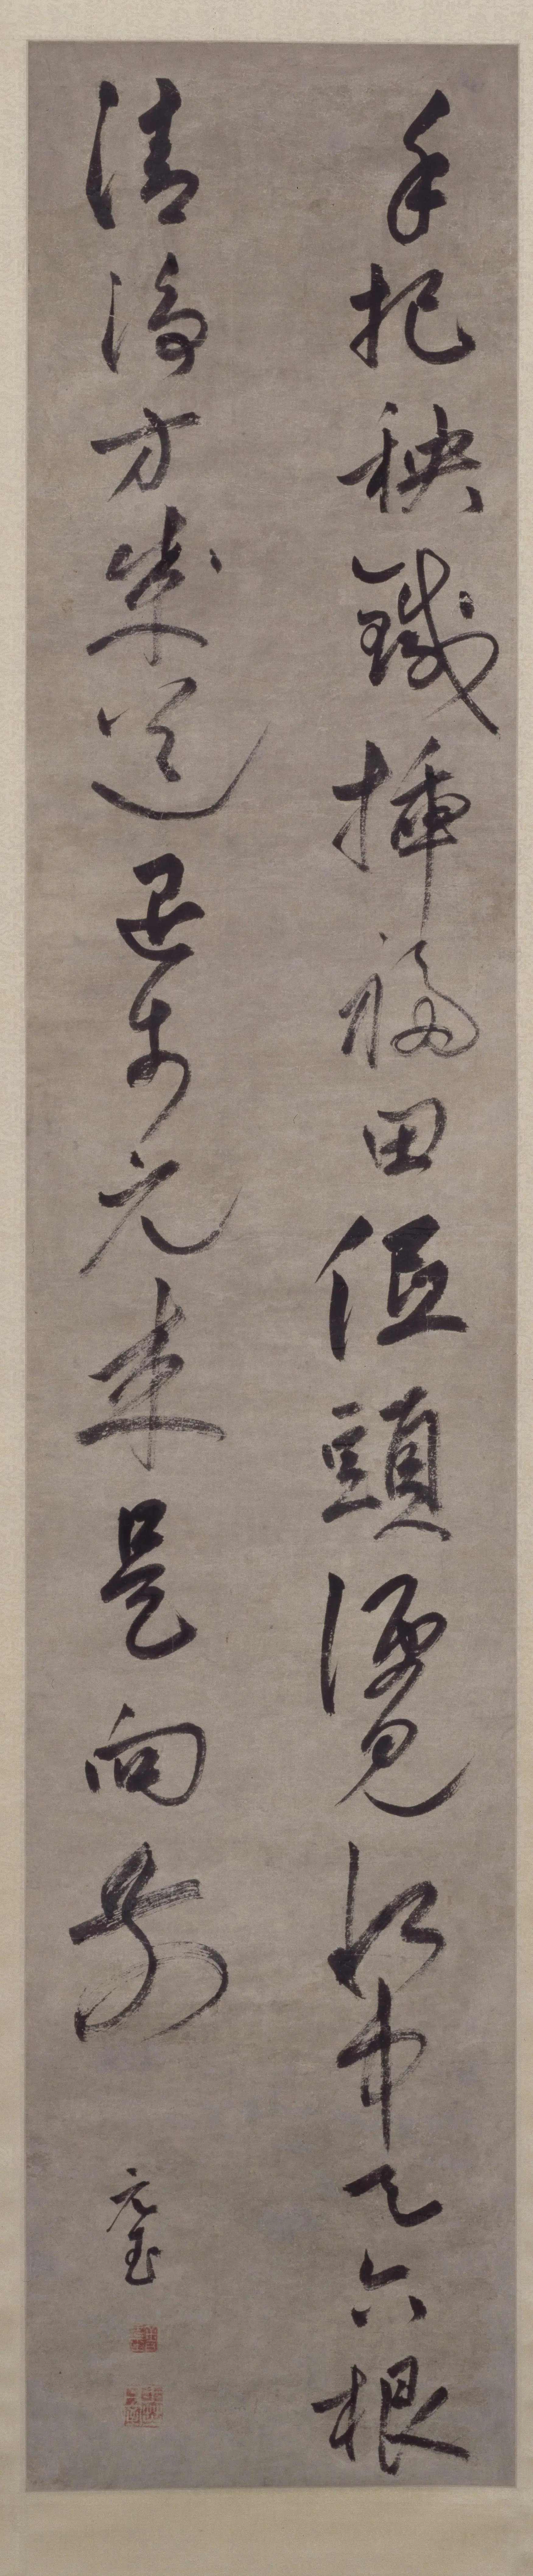 手把秧鍼插福田低頭便見水中天六根
清淨方成道退步元来是向前
元玉